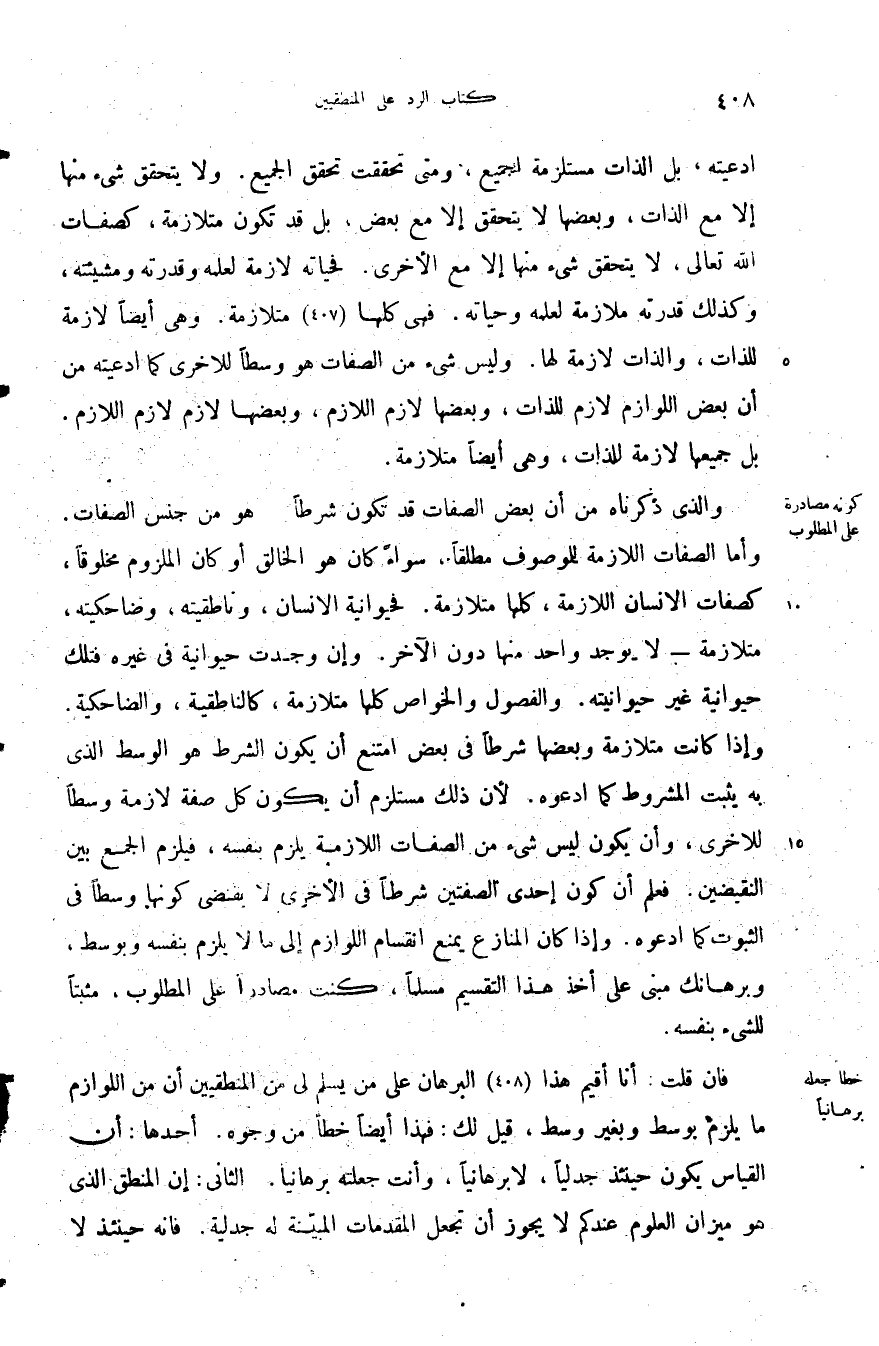 ٤٠٨
كتاب الرد على المنطقيين
ادعيته، بل الذات مستلزمة الجميع، ومتى تحققت تحقق الجميع. ولا يتحقق شىء منها
إلا مع الذات، وبعضها لا يتحقق إلا مع بعض، بل قد تكون متلازمة، كصفات
الله تعالى، لا يتحقق شىء منها إلا مع الأخرى. فحياته لازمة لعلمه وقدرته ومشيئته،
وكذلك قدرته ملازمة لعلمه وحياته. فهى كلها (٤٠٧) متلازمة. وهى أيضاً لازمة
للذات، والذات لازمة لها. وليس شىء من الصفات هو وسطاً للاخرى كما ادعيته من
٥
أن بعض اللوازم لازم للذات، وبعضها لازم اللازم، وبعضها لازم لازم اللازم.
بل جميعها لازمة للذات، وهى أيضاً متلازمة.
والذى ذكرناه من أن بعض الصفات قد تكون شرطاً هو من جنس الصفات.
كونه مصادرة
على المطلوب
وأما الصفات اللازمة للموصوف مطلقاً، سواءً كان هو الخالق أو كان الملزوم مخلوقاً،
كصفات الانسان اللازمة، كلها متلازمة. فحيوانية الانسان، وناطقيته، وضاحكيته،
١٠
متلازمة — لا يوجد واحد منها دون الآخر. وإن وجدت حيوانية فى غيره فتلك
حيوانية غير حيوانيته. والفصول والخواص كلها متلازمة، كالناطقية، والضاحكية.
وإذا كانت متلازمة وبعضها شرطاً فى بعض امتنع أن يكون الشرط هو الوسط الذى
به يثبت المشروط كما ادعوه. لأن ذلك مستلزم أن يكون كل صفة لازمة وسطاً
للاخرى، وأن يكون ليس شىء من الصفات اللازمة يلزم بنفسه، فيلزم الجمع بين
١٥
النقيضين. فعلم أن كون إحدى الصفتين شرطاً فى الأخرى لا يقتضى كونها وسطاً فى
الثبوت كما ادعوه. وإذا كان المنازع يمنع انقسام اللوازم إلى ما لا يلزم بنفسه وبوسط،
وبرهانك مبنى على أخذ هذا التقسيم مسلماً، كنت مصادراً على المطلوب، مثبتاً
للشىء بنفسه.
فان قلت: أنا أقيم هذا (٤٠٨) البرهان على من يسلم لى من المنطقيين أن من اللوازم
خطا جعله
برهانياً
ما يلزم بوسط وبغير وسط، قيل لك: فهذا أيضاً خطأ من وجوه. أحدها: أن
القياس يكون حينئذ جدلياً، لا برهانياً، وأنت جعلته برهانياً. الثانى: إن المنطق الذى
هو ميزان العلوم عندكم لا يجوز أن تجعل المقدمات المبيّنة له جدلية. فانه حينئذ لا